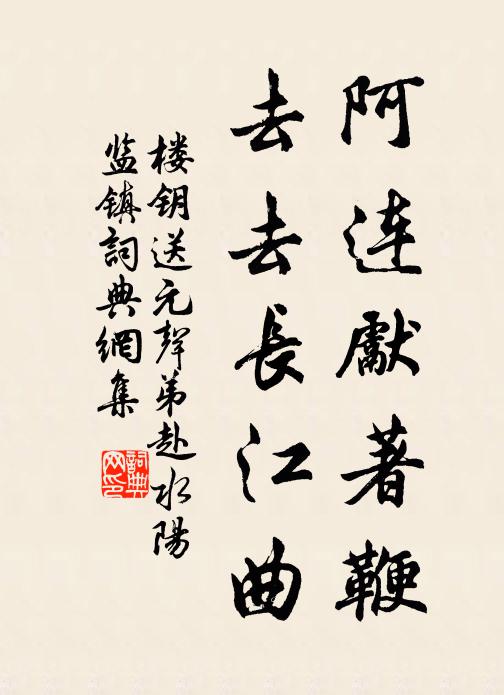 阿连獻著鞭
去去長江曲
楼钥送元聲弟赴水陽
监镇詞典網集
詞典网印